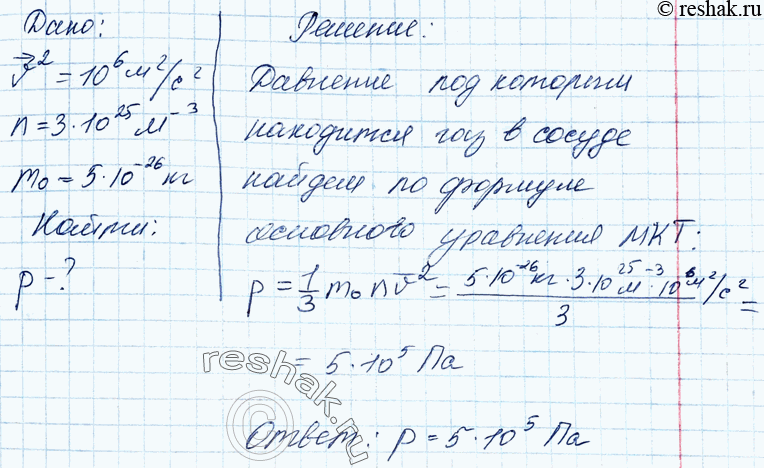 © reshak.ru
Дано:
v̄² = 10⁶ м²/с²
n = 3·10²⁵ м⁻³
m₀ = 5·10⁻²⁶ кг
Найти:
p - ?
Решение:
Давление под которым
находится газ в сосуде
найдем по формуле
основного уравнения МКТ:
p = 1/3 m₀ n v̄² = 5·10⁻²⁶ кг · 3·10²⁵ м⁻³ · 10⁶ м²/с² / 3 =
= 5·10⁵ Па
reshak.ru
©
Ответ: p = 5·10⁵ Па